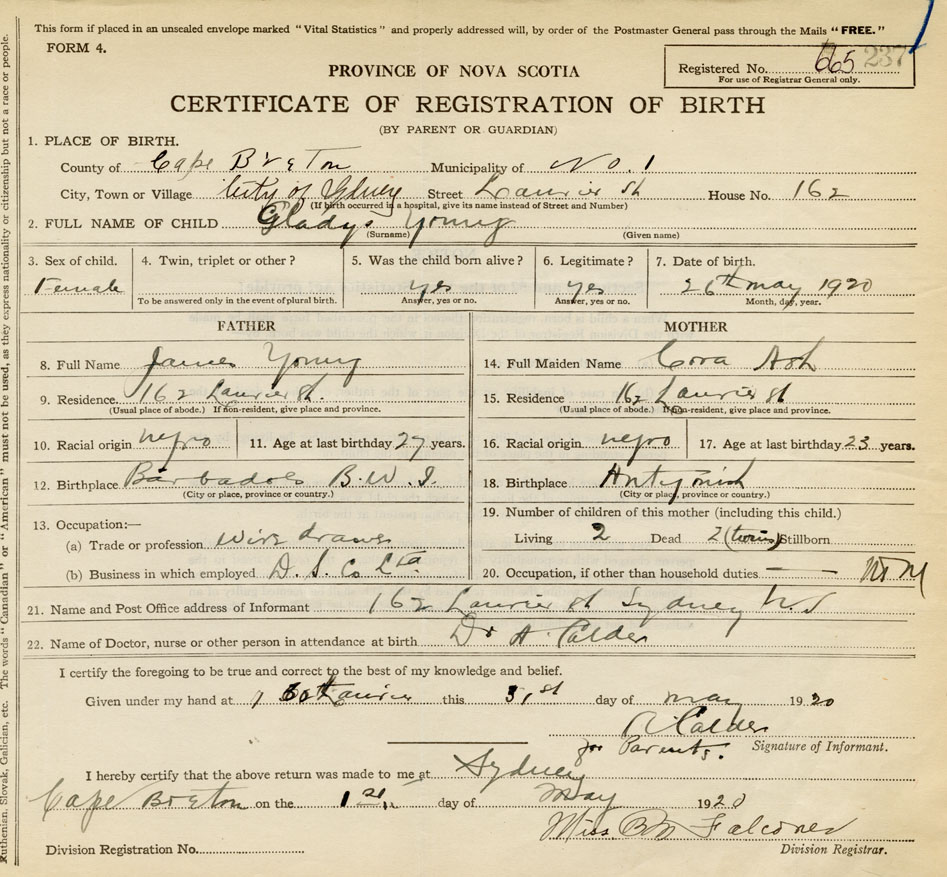 This form if placed in an unsealed envelope marked "Vital Statistics" and properly addressed will, by order of the Postmaster General pass through the Mails "FREE."
FORM 4.
Registered No. 665 237
For use of Registrar General only.
PROVINCE OF NOVA SCOTIA
CERTIFICATE OF REGISTRATION OF BIRTH
(BY PARENT OR GUARDIAN)
1. PLACE OF BIRTH.
County of Cape Breton Municipality of No. 1
City, Town or Village City of Sydney Street Laurier St House No. 162
(If birth occurred in a hospital, give its name instead of Street and Number)
2. FULL NAME OF CHILD Gladys Young
(Surname) (Given name)
3. Sex of child. 4. Twin, triplet or other? 5. Was the child born alive? 6. Legitimate? 7. Date of birth.
Female yes yes 26th may 1920
To be answered only in the event of plural birth. Answer, yes or no. Answer, yes or no. Month, day, year.
FATHER
8. Full Name James Young
9. Residence 162 Laurier St.
(Usual place of abode.) If non-resident, give place and province.
10. Racial origin negro 11. Age at last birthday 27 years.
12. Birthplace Barbados B.W.I.
(City or place, province or country.)
13. Occupation:—
(a) Trade or profession wire drawer
(b) Business in which employed D. S. Co Ltd
MOTHER
14. Full Maiden Name Cora Ash
15. Residence 162 Laurier St
(Usual place of abode.) If non-resident, give place and province.
16. Racial origin negro 17. Age at last birthday 23 years.
18. Birthplace Antigonish
(City or place, province or country.)
19. Number of children of this mother (including this child.)
Living 2 Dead 2 (twins) Stillborn
20. Occupation, if other than household duties
21. Name and Post Office address of Informant 162 Laurier St Sydney N.S
22. Name of Doctor, nurse or other person in attendance at birth Dr A. Calder
I certify the foregoing to be true and correct to the best of my knowledge and belief.
Given under my hand at this 31st day of may 1920
A Calder
for Parents. Signature of Informant.
I hereby certify that the above return was made to me at Sydney
Cape Breton on the day of May 1920
Miss Falconer
Division Registration No. Division Registrar.
Ruthenian, Slovak, Galician, etc. The words "Canadian" or "American" must not be used, as they express nationality or citizenship but not a race or people.